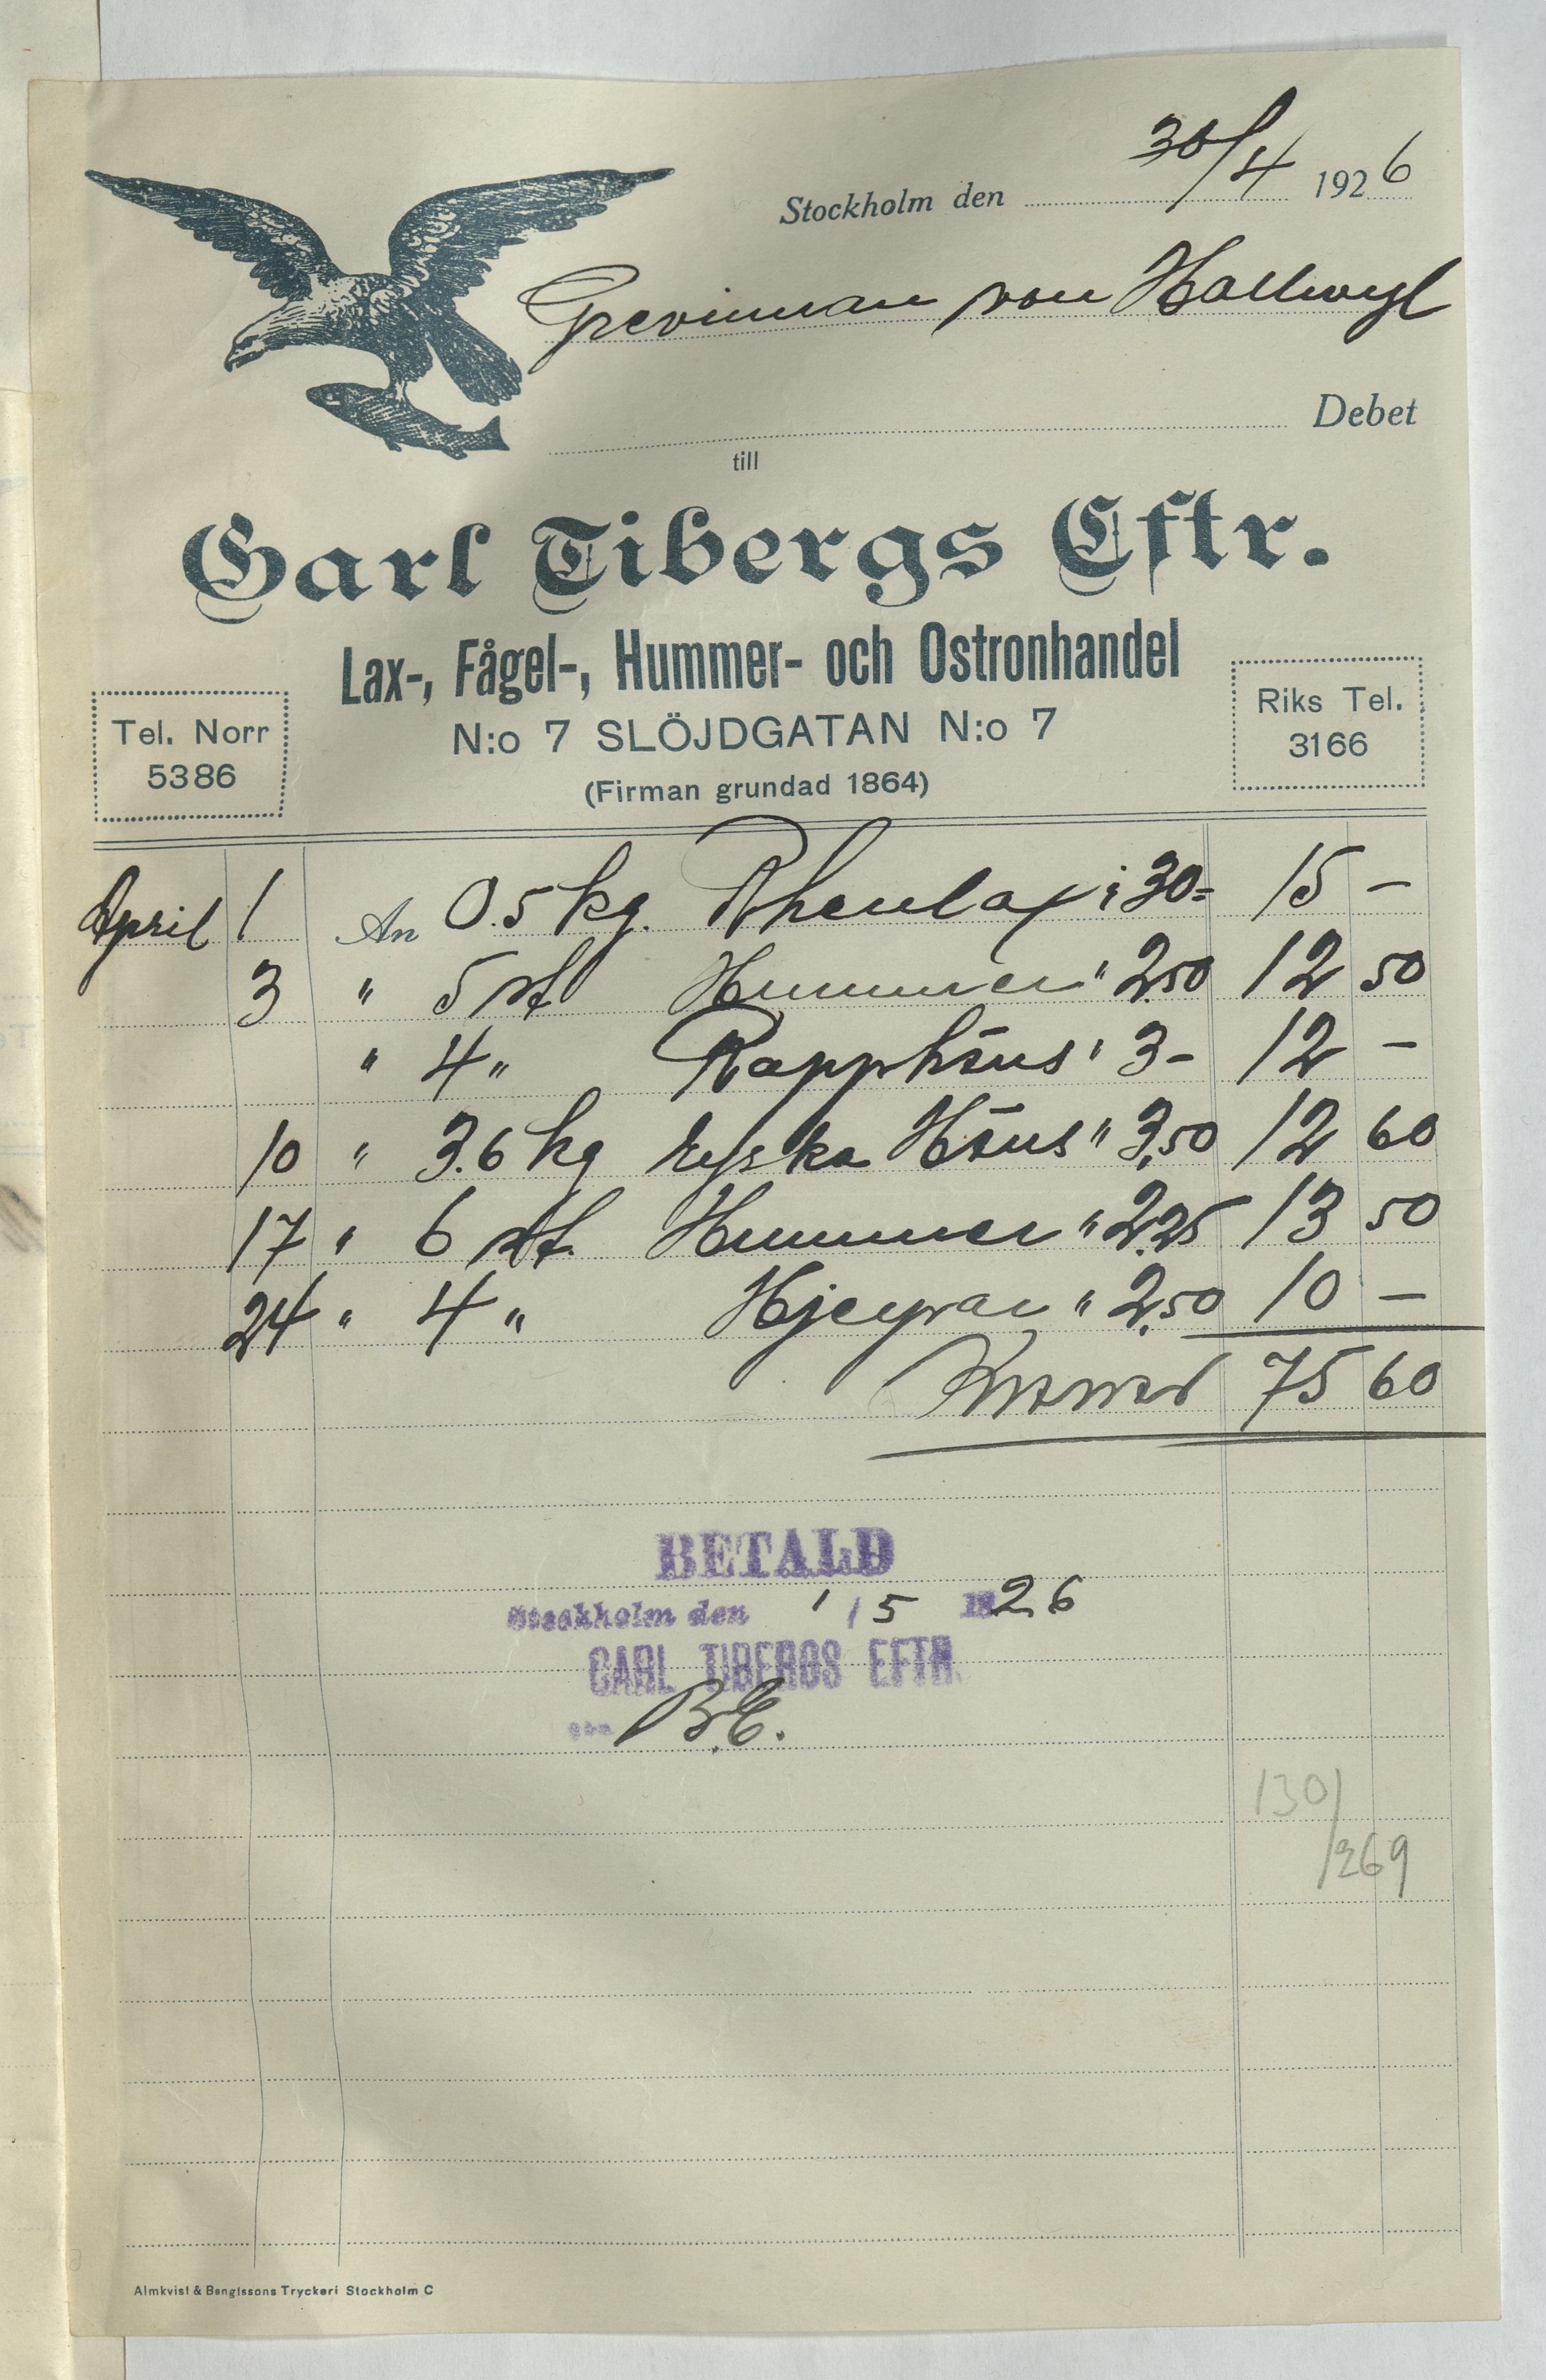 Stockholm den 30/4 1926
Grevinnan von Hallwyl
Debet
till
Carl Tibergs Eftr.
Lax-, Fågel-, Hummer- och Ostronhandel
Tel. Norr 5386
N:o 7 SLÖJDGATAN N:o 7
Riks Tel. 3166
(Firman grundad 1864)
April 1 An 0.5 kg. Rhenlax i 30= 15 –
3 " 5 st Hummer " 2.50 12 50
" 4 " Rapphöns " 3– 12 –
10 " 3.6 kg ryska Höns " 3,50 12 60
17 " 6 st. Hummer " 2.25 13 50
24 " 4 " Hjerpar " 2,50 10 –
Kronor 75 60
BETALD
Stockholm den 1/5 1926
CARL TIBERGS EFTR.
B.E.
130/
/269
Almkvist & Bengtssons Tryckeri Stockholm C